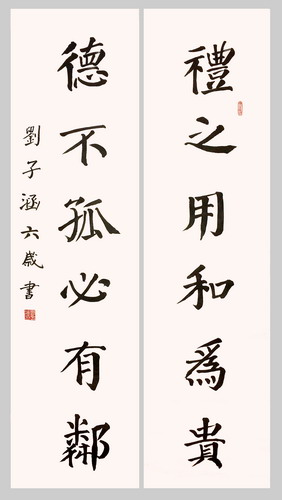 禮之用和為貴
德不孤必有鄰
劉子涵六歲書